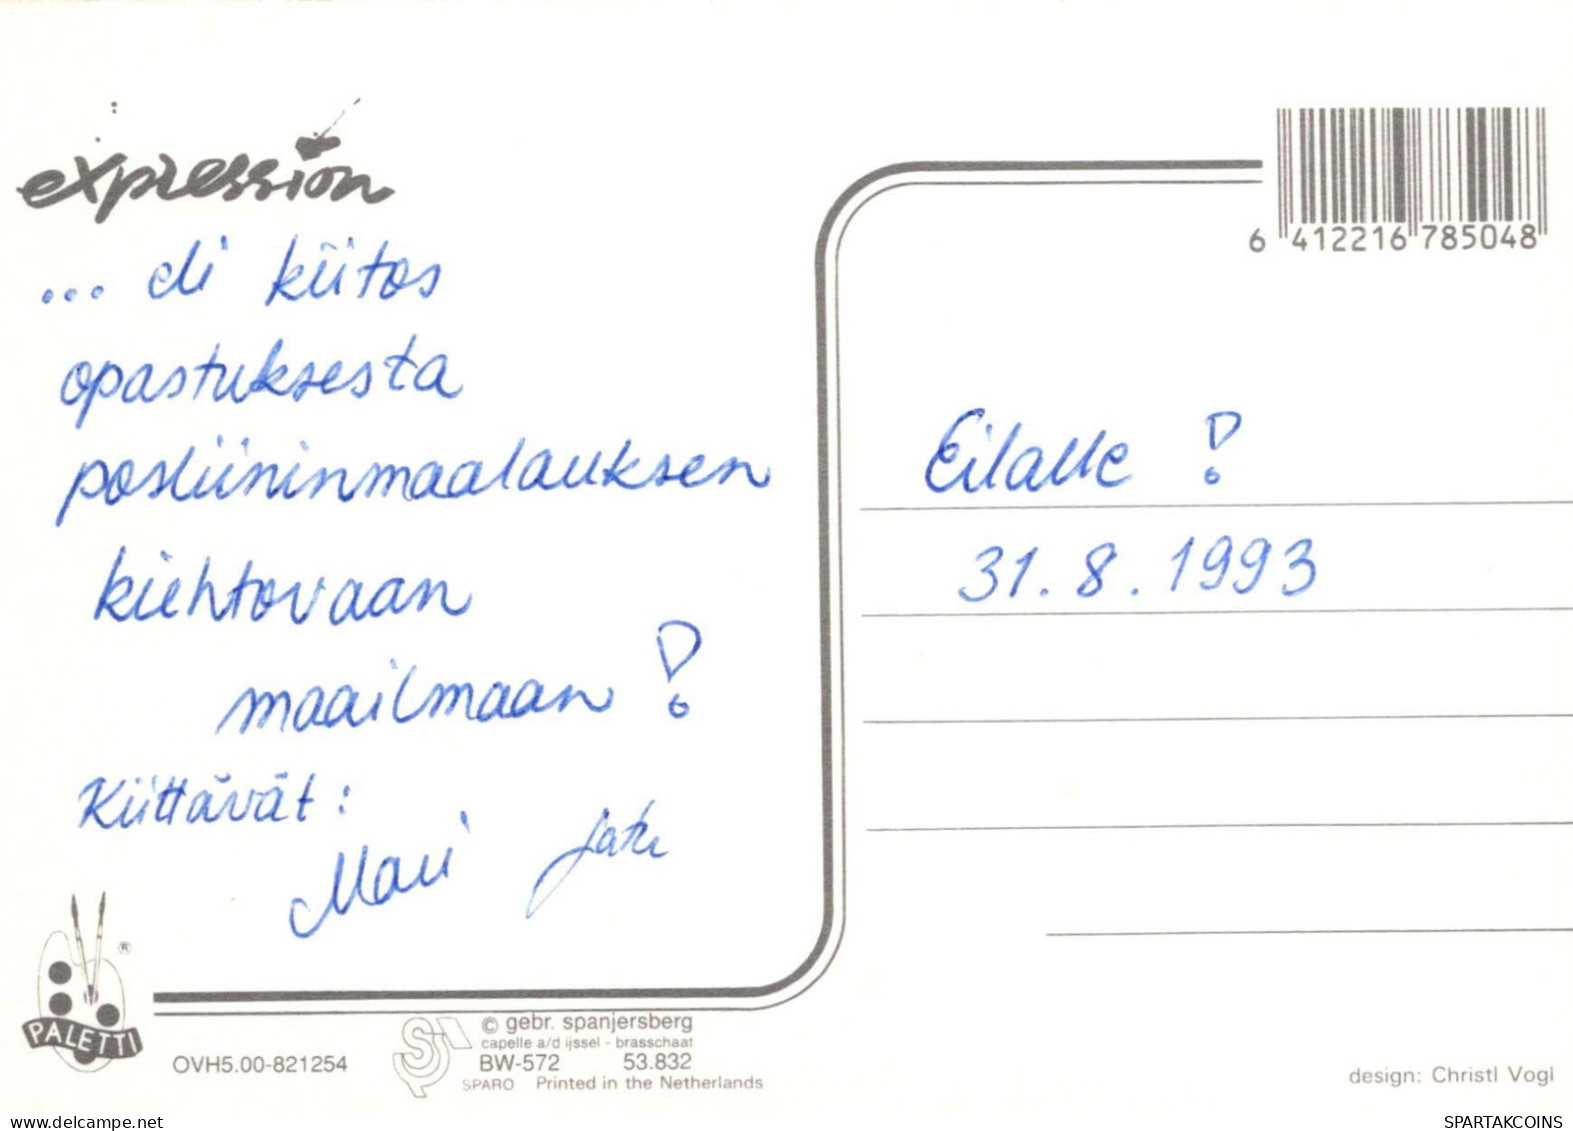 expression
... eli kiitos
opastuksesta
posliininmaalauksen
kiehtovaan
maailmaan !
Kiittävät :
Mari
6 412216 785048
Eilalle !
31.8.1993
PALETTI
®
OVH5.00-821254
© gebr. spanjersberg
capelle a/d ijssel - brasschaat
BW-572 53.832
SPARO Printed in the Netherlands
design: Christl Vogl
delcampe.net
SPARTAKCOINS